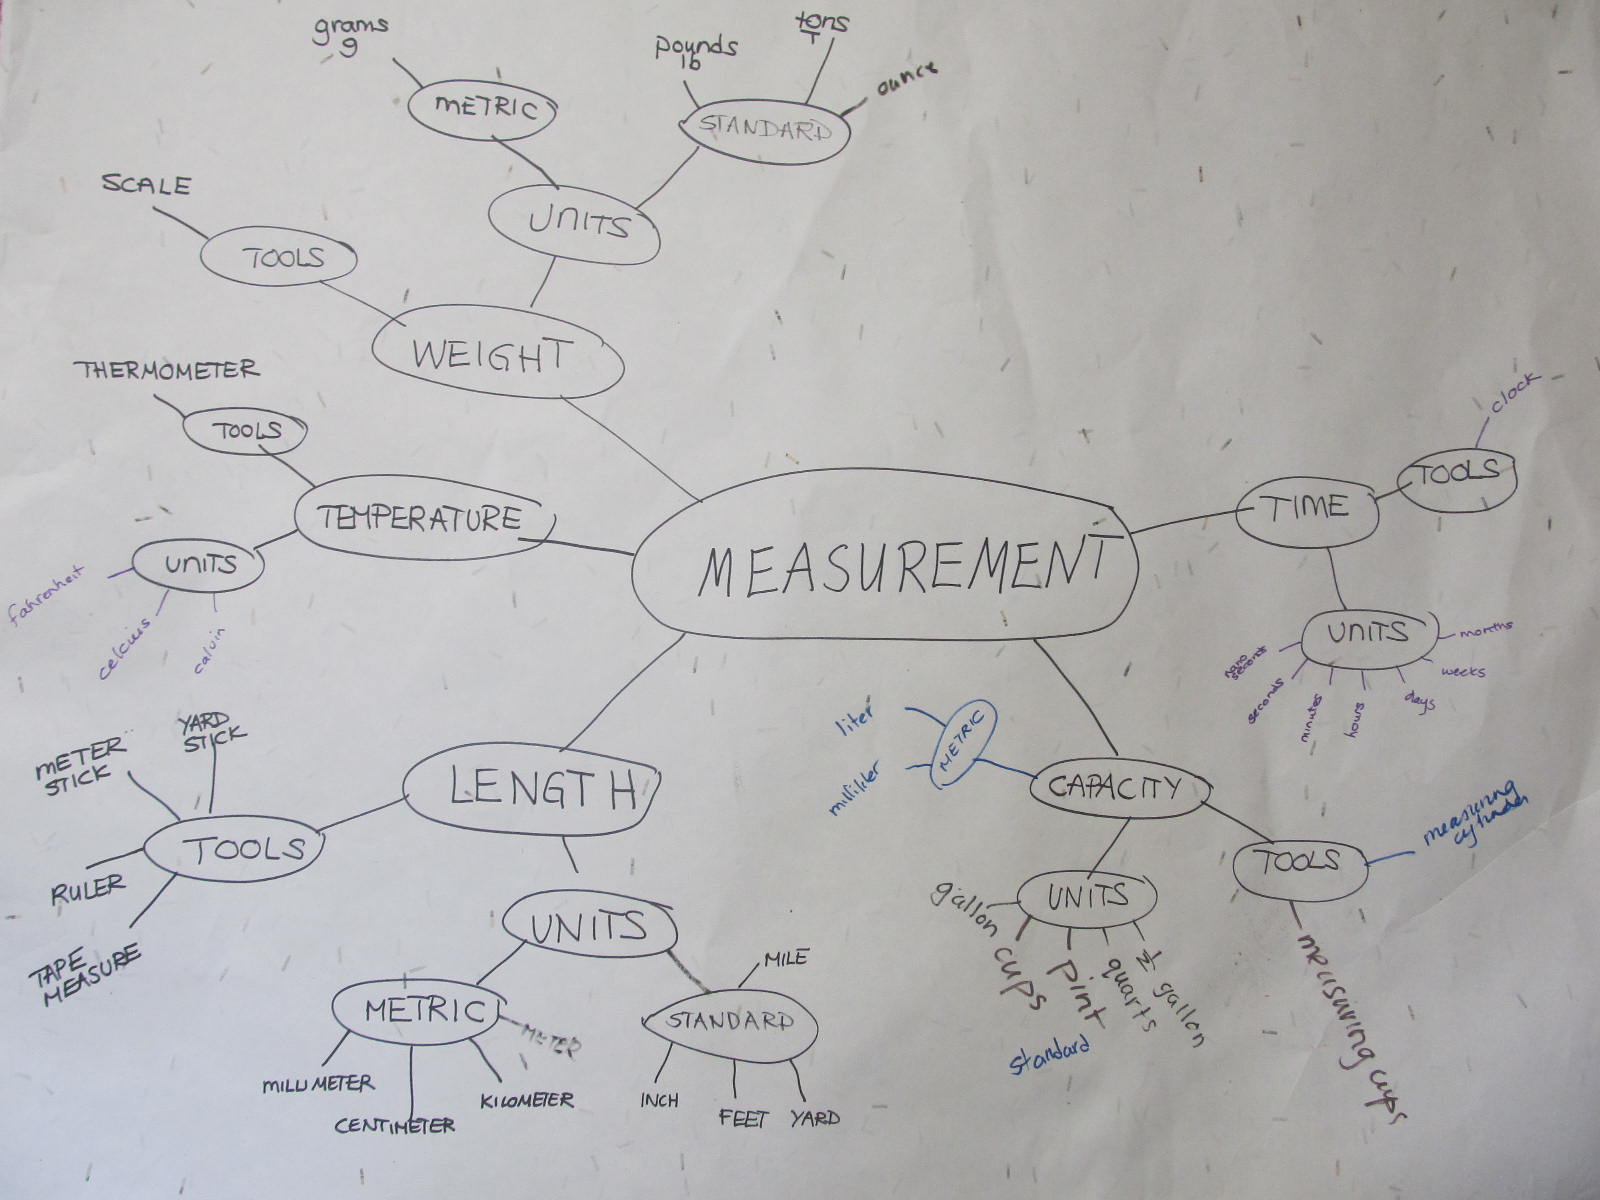 grams
g
METRIC
pounds
lb
tons
T
ounce
STANDARD
UNITS
SCALE
TOOLS
WEIGHT
THERMOMETER
TOOLS
TEMPERATURE
UNITS
fahrenheit
celcius
calvin
MEASUREMENT
TIME
TOOLS
clock
UNITS
nano
seconds
seconds
minutes
hours
days
weeks
months
YARD
STICK
METER
STICK
TOOLS
RULER
TAPE
MEASURE
LENGTH
UNITS
METRIC
METER
MILLIMETER
CENTIMETER
KILOMETER
STANDARD
MILE
INCH
FEET
YARD
CAPACITY
METRIC
liter
milliliter
UNITS
gallon
cups
pint
quarts
1/2 gallon
standard
TOOLS
measuring
cylinder
measuring cups